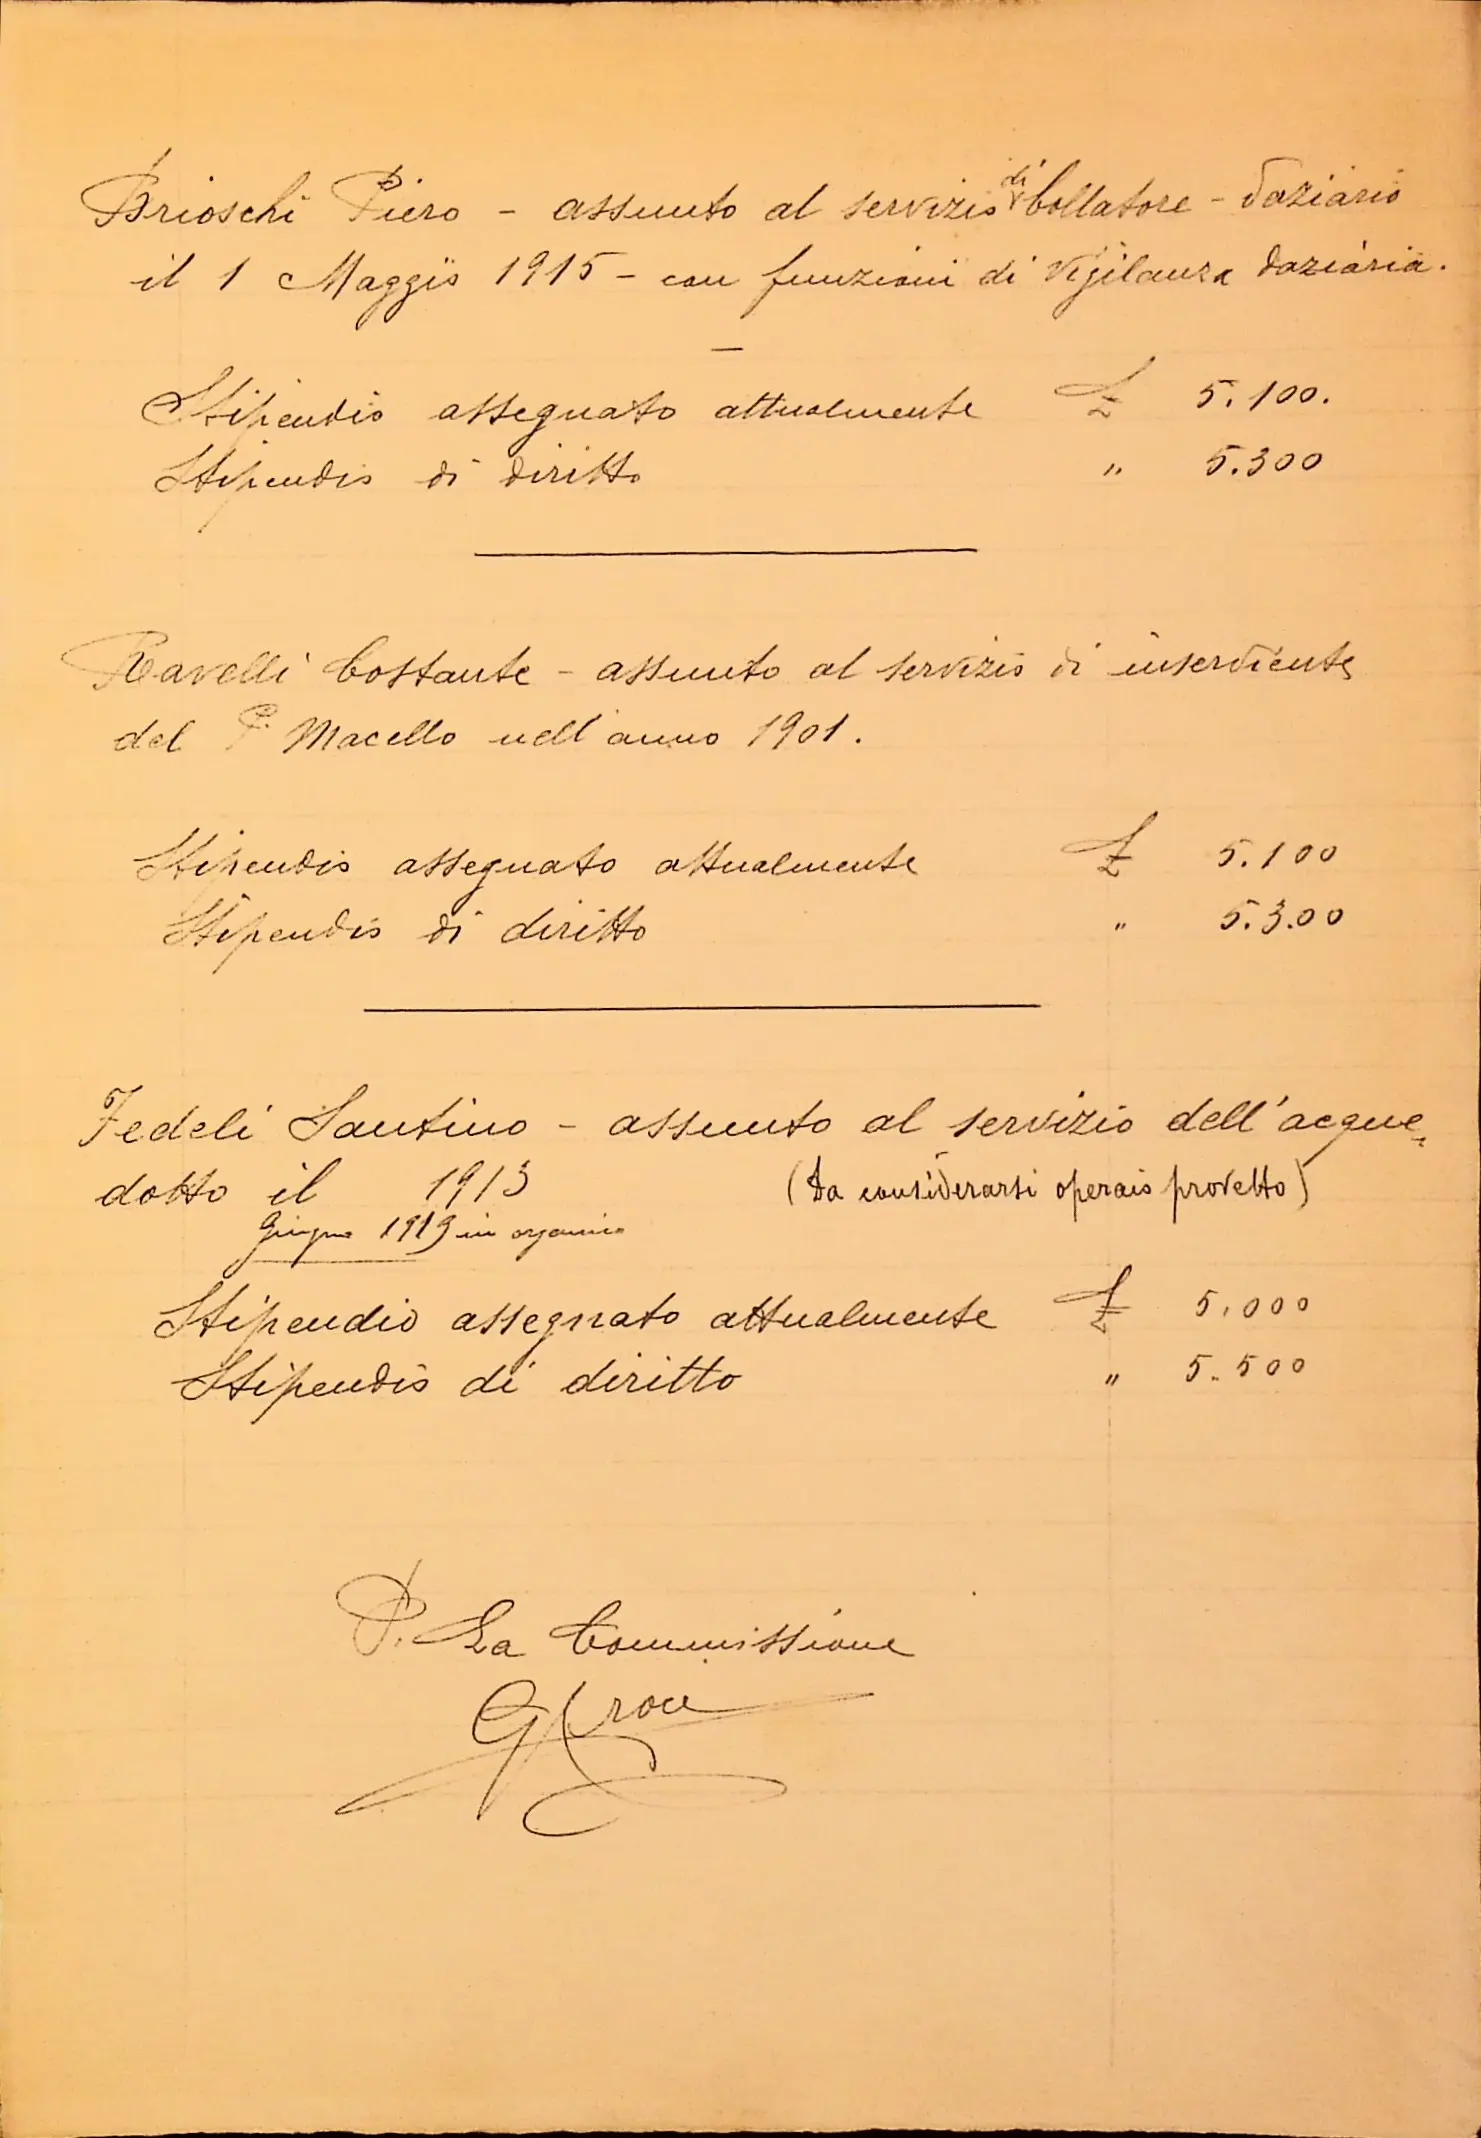 Brioschi Piero - assunto al servizio di bollatore - daziario
il 1 Maggio 1915 - con funzioni di vigilanza daziaria.
Stipendio assegnato attualmente £ 5.100.
Stipendio di diritto " 5.300
Ravelli Costante - assunto al servizio di inserviente
del P. Macello nell'anno 1901.
Stipendio assegnato attualmente £ 5.100
Stipendio di diritto " 5.3.00
Fedeli Santino - assunto al servizio dell'acque-
dotto il 1913 (da considerarsi operaio provetto)
Giugno 1919 in organico
Stipendio assegnato attualmente £ 5.000
Stipendio di diritto " 5.500
P. La Commissione
G Croce